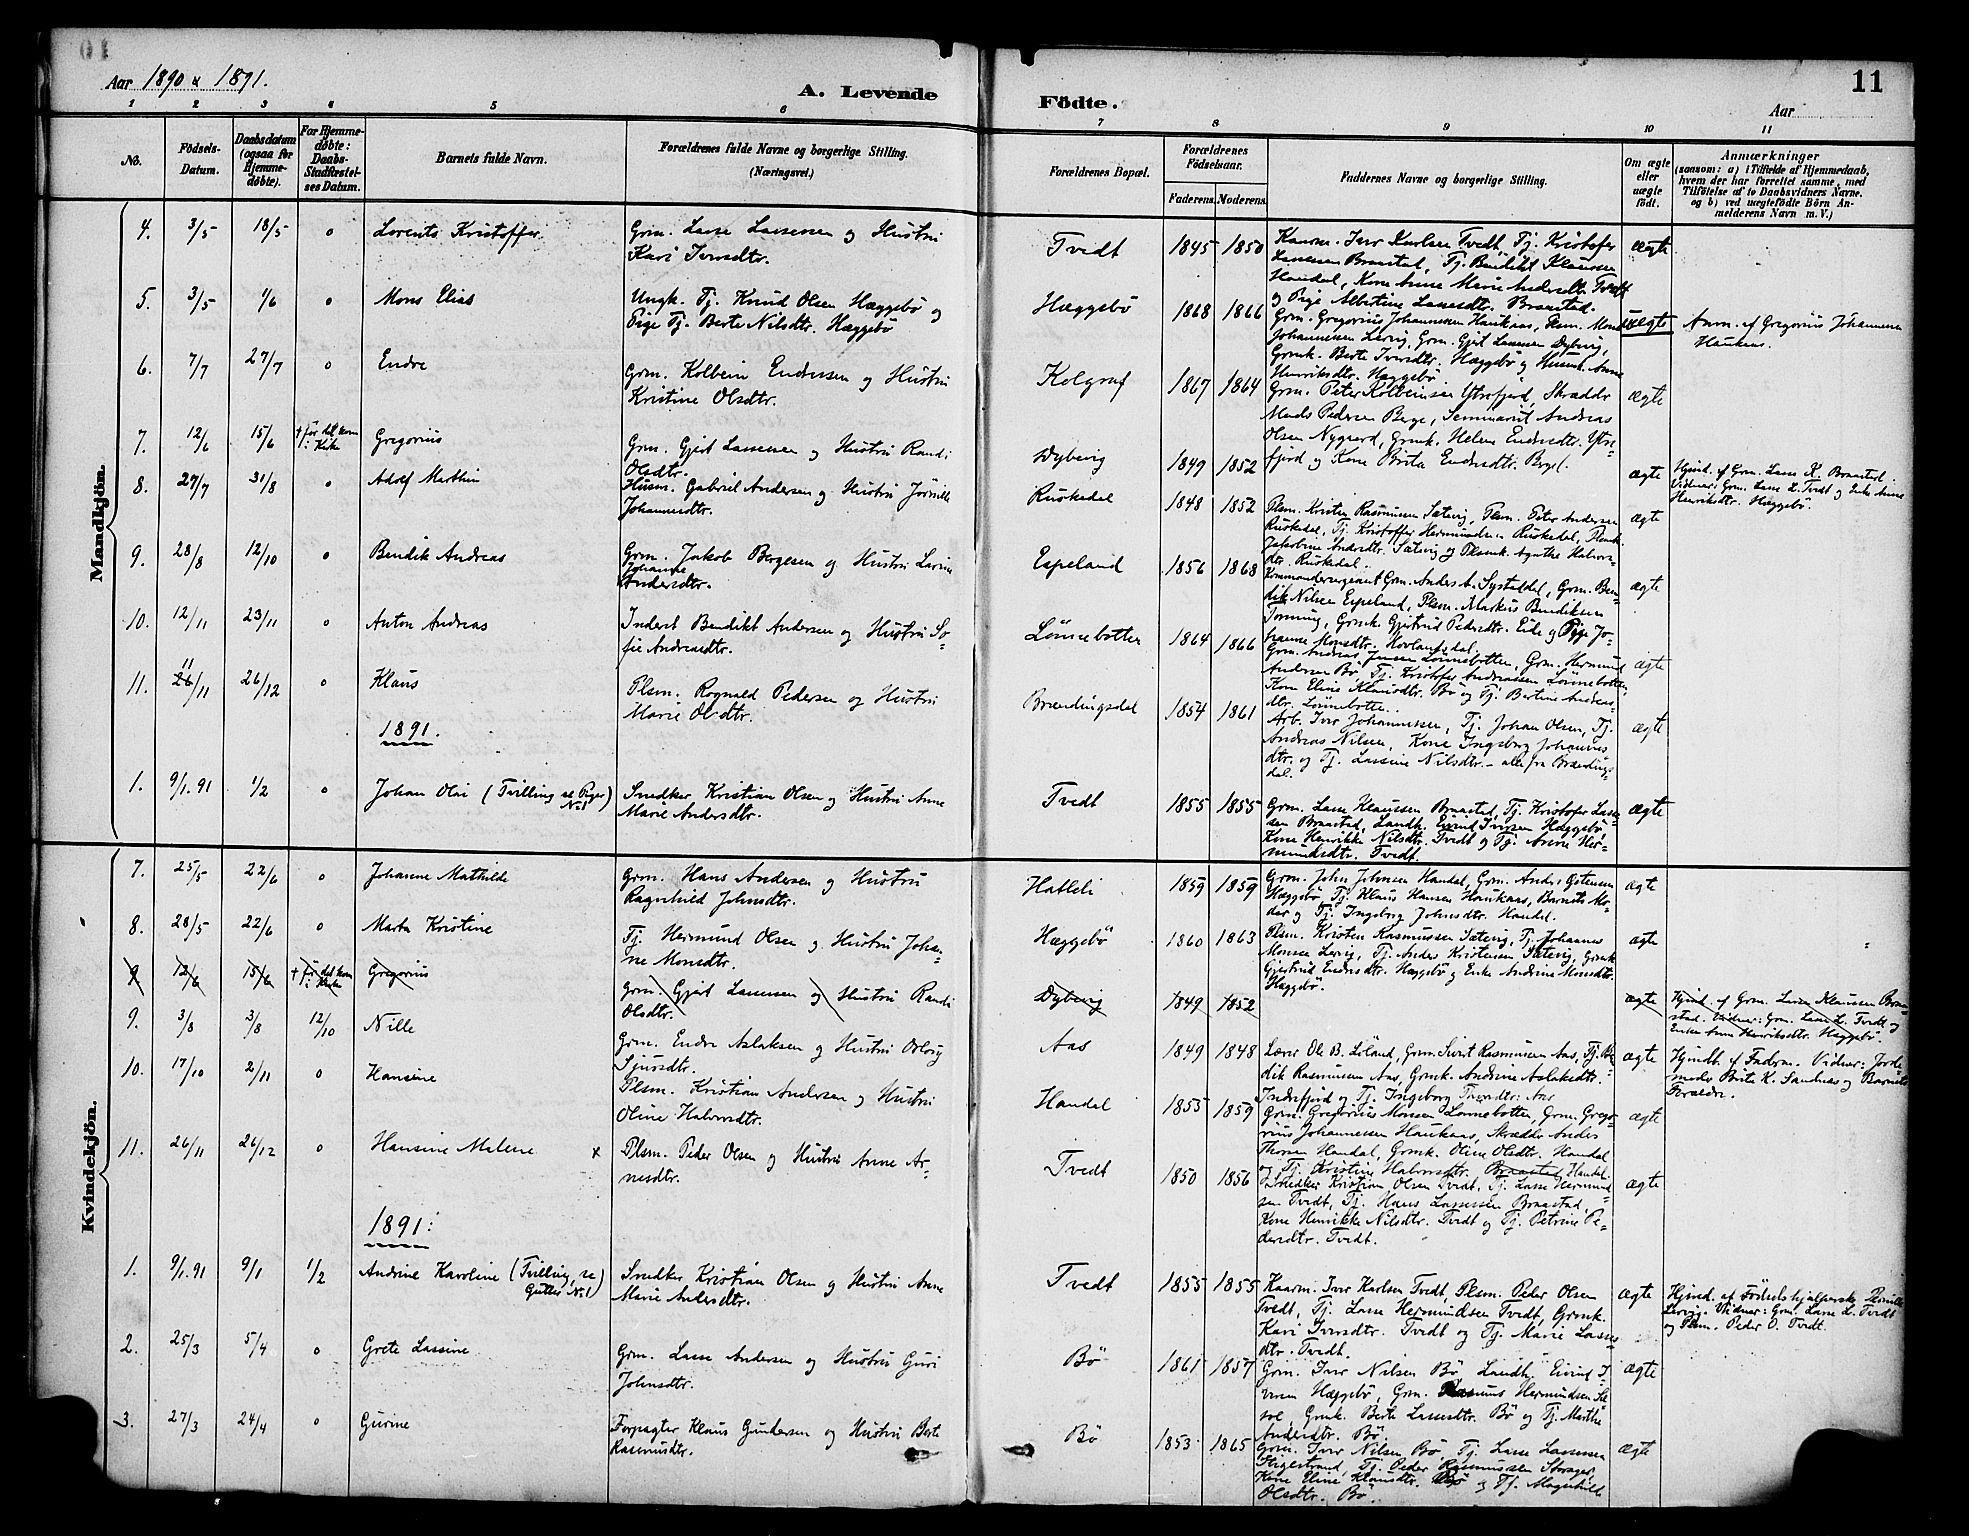 Aar 1890 & 1891.
A. Levende
Födte.
Aar
11
1 2 3 4 5 6 7 8 9 10 11
No.
Födsels-
Datum.
Daabsdatum
(ogsaa for
Hjemme-
döbte).
For Hjemme-
döbte:
Daabs-
Stadfæstel-
ses Datum.
Barnets fulde Navn.
Forældrenes fulde Navne og borgerlige Stilling.
(Næringsvei.)
Forældrenes Bopæl.
Forældrenes
Födselsaar.
Faderens. Moderens.
Faddernes Navne og borgerlige Stilling.
Om ægte
eller
uægte
født.
Anmærkninger
(saasom: a) i Tilfælde af Hjemmedaab,
hvem der har forrettet samme, med
Tilföielse af to Daabsvidners Navne.
og b) ved uægtefödte Börn An-
melderens Navn m. V.)
Mandkjön.
4. 3/5 18/5 0 Lorents Kristoffer.
Grm. Lasse Lassesen og Hustru
Kari Iversdtr.
Tvedt 1845 1850
Kaarm. Iver Karlsen Tvedt, Tj. Kristofer
Lassesen Braastad, Tj. Bendikt Klaussen
Handal, Kone Anne Marie Andersdtr. Tvedt
og Pige Albertine Lassesdtr. Braastad.
ægte
5. 3/5 1/6 0 Mons Elias
Ungk. Tj. Knud Olsen Hæggebö og
Pige Tj. Berte Nilsdtr. Hæggebö
Hæggebö 1868 1866
Grm. Gregorius Johannessen Haukaas,
Johannessen Lervig, Grm. Gjert Lassesen Dybvig,
Grmk. Berte Iversdtr. Hæggebö og Husm. Anne
Henriksdtr. Hæggebö
uægte
Anm. af Gregorius Johannesen
Haukaas.
6. 7/7 27/7 0 Endre
Grm. Kolbein Endresen og Hustru
Kristine Olsdtr.
Kolgrof 1867 1864
Grm. Peter Kolbeinsen Ytrefjord, Skrædder
Mads Pedersen Berge, Seminarist Andreas
Olsen Nygaard, Grmk. Helene Endresdtr. Ytre-
fjord og Kone Brita Endresdtr.
ægte
7. 12/6 15/6 † før det kom
i Kirke
Gregorius
Grm. Gjert Lassesen og Hustru Randi
Olsdtr.
Dybevig 1849 1852
ægte
Hjmd. af Grm. Lasse K. Braastad.
Vidner: Grm. Lasse L. Tvedt og Enke Anne
Henriksdtr. Hæggebö.
8. 27/7 31/8 0 Adolf Marthin
Husm. Gabriel Andersen og Hustru
Johannesdtr.
Ruskedal 1848 1852
Plsm. Kristen Rasmussen Sætevig, Plsm. Peter Andersen
Ruskedal, Tj. Kristoffer Hermundsen Ruskedal, Plsmk.
Jakobine Andersdtr. Sætevig og Plsmk. Agathe Halvors-
dtr. Ruskedal.
ægte
9. 28/8 12/10 0 Bendik Andreas
Grm. Jakob Børgesen og Hustru Lavine
Johanne
Andersdtr.
Espeland 1856 1868
Kommandersergeant Grm. Anders A. Systaddal, Grm. Ben-
dik Nilsen Espeland, Plsm. Markus Bendiksen
Torning, Grmk. Gjertrud Pedersdtr. Eide og Pige Jo-
hanne Monsdtr. Hovlandsdal.
ægte
10. 12/11 23/11 0 Anton Andreas
Inderst Bendikt Andersen og Hustru So-
fie Andreasdtr.
Lönnebotten 1864 1866
Grm. Andreas Jensen Lönnebotten, Grm. Hermund
Andersen Bö, Tj. Kristofer Andreassen Lönnebotten,
Kone Eline Klausdtr. Bö og Tj. Bertine Andreas-
dtr. Lönnebotten.
ægte
11. 11 26/11 26/12 0 Klaus
Plsm. Rognald Pedersen og Hustru
Marie Olsdtr.
Brændingsdal 1854 1861
Arb. Iver Johannessen, Tj. Johan Olsen, Tj.
Andreas Nilsen, Kone Ingeborg Johannes
dtr. og Tj. Lassine Nilsdtr. – alle fra Brændings-
dal.
ægte
1891.
1. 9/1.91 1/2 0 Johan Olai (Tvilling se Piger
No 1)
Snedker Kristian Olsen og Hustru Anne
Marie Andersdtr.
Tvedt 1855 1855
Grm. Lasse Klaussen Braastad, Tj. Kristofer Lasse-
sen Braastad, Landh. Eivind Iversen Hæggebö,
Kone Henrikke Nilsdtr. Tvedt og Tj. Anne Her-
mundsdtr. Tvedt.
ægte
Kvindekjön.
7. 25/5 22/6 0 Johanne Mathilde
Grm. Hans Andersen og Hustru
Ragnhild Johnsdtr.
Hatleli 1859 1859
Grm. John Johnsen Handal, Grm. Anders
Hæggebö Tj. Klaus Hansen Haukaas, Barnets Mo-
der og Tj. Ingeborg Johnsdtr. Handal.
ægte
8. 28/5 22/6 0 Marta Kristine
Tj. Hermund Olsen og Hustru Johan-
ne Monsdtr.
Hæggebö 1860 1863
Plsm. Kristen Rasmussen Sætevig, Tj. Johannes
Monsen Lervig, Tj. Anders Kristensen Sætevig, Grmk.
Gjertrud Endresdtr. Hæggebö og Enke Andrine Monsdtr.
Hæggebö.
ægte
9 12/6 15/6 † før det kom
i Kirke
Gregorius
Grm. Gjert Lassesen og Hustru Randi
Olsdtr.
Dybevig 1849 1852
ægte
Hjmd. af Grm. Lasse Klaussen Braa-
stad. Vidner: Grm. Lasse L. Tvedt og
Enke Anne Henriksdtr. Hæggebö.
9. 3/8 3/8 12/10 Nille
Grm. Endre Aslaksen og Hustru Oslaug
Sjursdtr.
Aas 1849 1848
Lærer Ole B. Löland, Grm. Sivert Rasmussen Aas, Tj.
Rasmussen Aas, Grmk. Andrine Aslaksdtr.
Indrefjord og Tj. Ingeborg Aas
ægte
Hjmdt. af Faderen. Vidner: Jorde-
moder Brita K. Sandnes og Barnets
Forældre.
10. 17/10 2/11 0 Hansine
Plsm. Kristian Andersen og Hustru
Oline Halvorsdtr.
Handal 1855 1859
Grm. Gregorius Monsen Lönnebotten, Grm. Grego-
rius Johannessen Haukaas, Skrædder Anders
Thorsen Handal, Grmk. Oline Olsdtr. Handal
og Tj. Kristine Halvorsdtr. Braastad Handal.
ægte
11. 26/11 26/12 0 Hansine Malene x
Plsm. Peder Olsen og Hustru Anne Ar-
nesdtr.
Tvedt 1850 1856
Snedker Kristian Olsen Tvedt, Tj. Lasse Hermund-
sen Tvedt, Tj. Hans Lassesen Braastad,
Kone Henrikke Nilsdtr. Tvedt og Tj. Petrine Pe-
dersdtr. Tvedt.
ægte
1891:
1. 9/1.91 9/1 1/2 Andrine Karoline (Tvilling, se
Gutter No 1)
Snedker Kristian Olsen og Hustru Anne
Marie Andersdtr.
Tvedt 1855 1855
Kaarm. Iver Karlsen Tvedt, Plsm. Peder Olsen
Tvedt, Tj. Lasse Hermundsen Tvedt, Grmk.
Kari Iversdtr. Tvedt og Tj. Marie Lasses-
dtr. Tvedt.
ægte
Hjmd. af Födselshjælperske Pernille
Lervig. Vidner: Grm. Lasse L. Tvedt
og Plsm. Peder O. Tvedt.
2. 25/3 5/4 0 Grete Lassine
Grm. Lasse Andersen og Hustru Guri
Johnsdtr.
Bö 1861 1857
Grm. Iver Nilsen Bö, Landh. Eivind I-
versen Hæggebö, Grm. Rasmus Hermundsen
Grmk. Berte Lassesdtr. Bö og Tj. Marthe
Andersdtr. Bö.
ægte
3. 27/3 24/4 0 Gurine
Forpagter Klaus Gundersen og Hustru Berte
Rasmusdtr.
Bö 1853 1865
Grm. Iver Nilsen Bö, Tj. Lasse Lassesen
Tj. Peder Rasmussen
Kone Eline Klausdtr. Bö og Tj. Magnhild
Olsdtr. Bö.
ægte